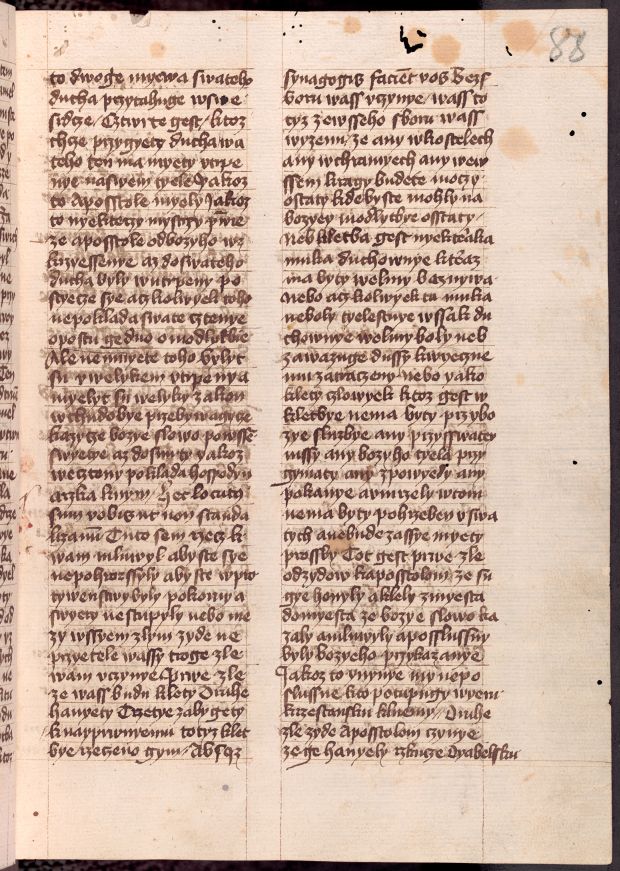 88
to dwoge myewa swateho
ducha przytahuge wssye
sidcze, Cztwrte gest ktoz
chcze przygyety ducha wa
teho ten ma myety vtrpe
nye naswem tyele Jakoz
to Aposstole myely Jakoz
to nyekterzy mystrzy prwie
ze aposstole odbozyho wz
krzyessenye az doswateho
ducha byly wutrpeny po
styecze sye aczkolwyek toho
nepoklada swate cztenye
opostu geduo omodlytbie
Ale nemnyete toho bylyt
su ywelykem vtrpenya
myelyt su welyky zakon
wchudobye przebywagycze
kazycze bozye slowo powsse
swyetye az dosmrty yakoz
wecztenij poklada hospodyn
arzka knym, hec locutus
sum vobis ut non scanda
lizamini Toto sem rzekl k
wam mluwyl abyste sye
nepohorssyly abyste wprot
tywenstwy byly pokorny a
swyety nestupyly nebo me
zy wssyem zlym zyde ne
przyetele wassy troge zle
wam vczynye Prwe zle
ze wass budu klety Druhe
hanyety Trzetye zabygety
knayprwnyemu totyz klet
bye rzeczeno gym, Absqz
synagogis facient vos Bezs
boru wass vczynye, wass to
tyz zewsseho sboru wass
wyzenu, ze any wkostelech
any wchramyech any wew
ssem kragy budete moczy
ostaty kdebyste mohly na
bozyey modlytbye osstaty,
neb kletba gest nyekteraka
muka duchownye kteraz
ma byty welmy beznywa
nebo aczkolwyek tu muka
neboly tyelestnye wssak du
chownye welmy boly neb
zawazuge dussy kwyeczne
mu zatraczeny nebo yako
klety czlowyek ktoz gest w
kletbye nema byty przybo
zye sluzbye any przysswatey
mssy any bozyho tyela przy
gymaty any zpowyedy any
pokanye avmrzely wtom
nema byty pohrzeben vswa
tych anebude zassye myety
prossby Tot gest prwe zle
odzydow kaposstolom ze su
gye honyly aklely zmyesta
domyesta ze bozye slowo ka
zaly amluwyly aposslussny
byly bozyeho przykazanye
Jakoz to vnynye my nepo
slussne kto potupugy wyeru
krzestansku klnemy, Druhe
zle zyde Aposstolom czynye
ze ge hanyely rzkucze Dyabelsku